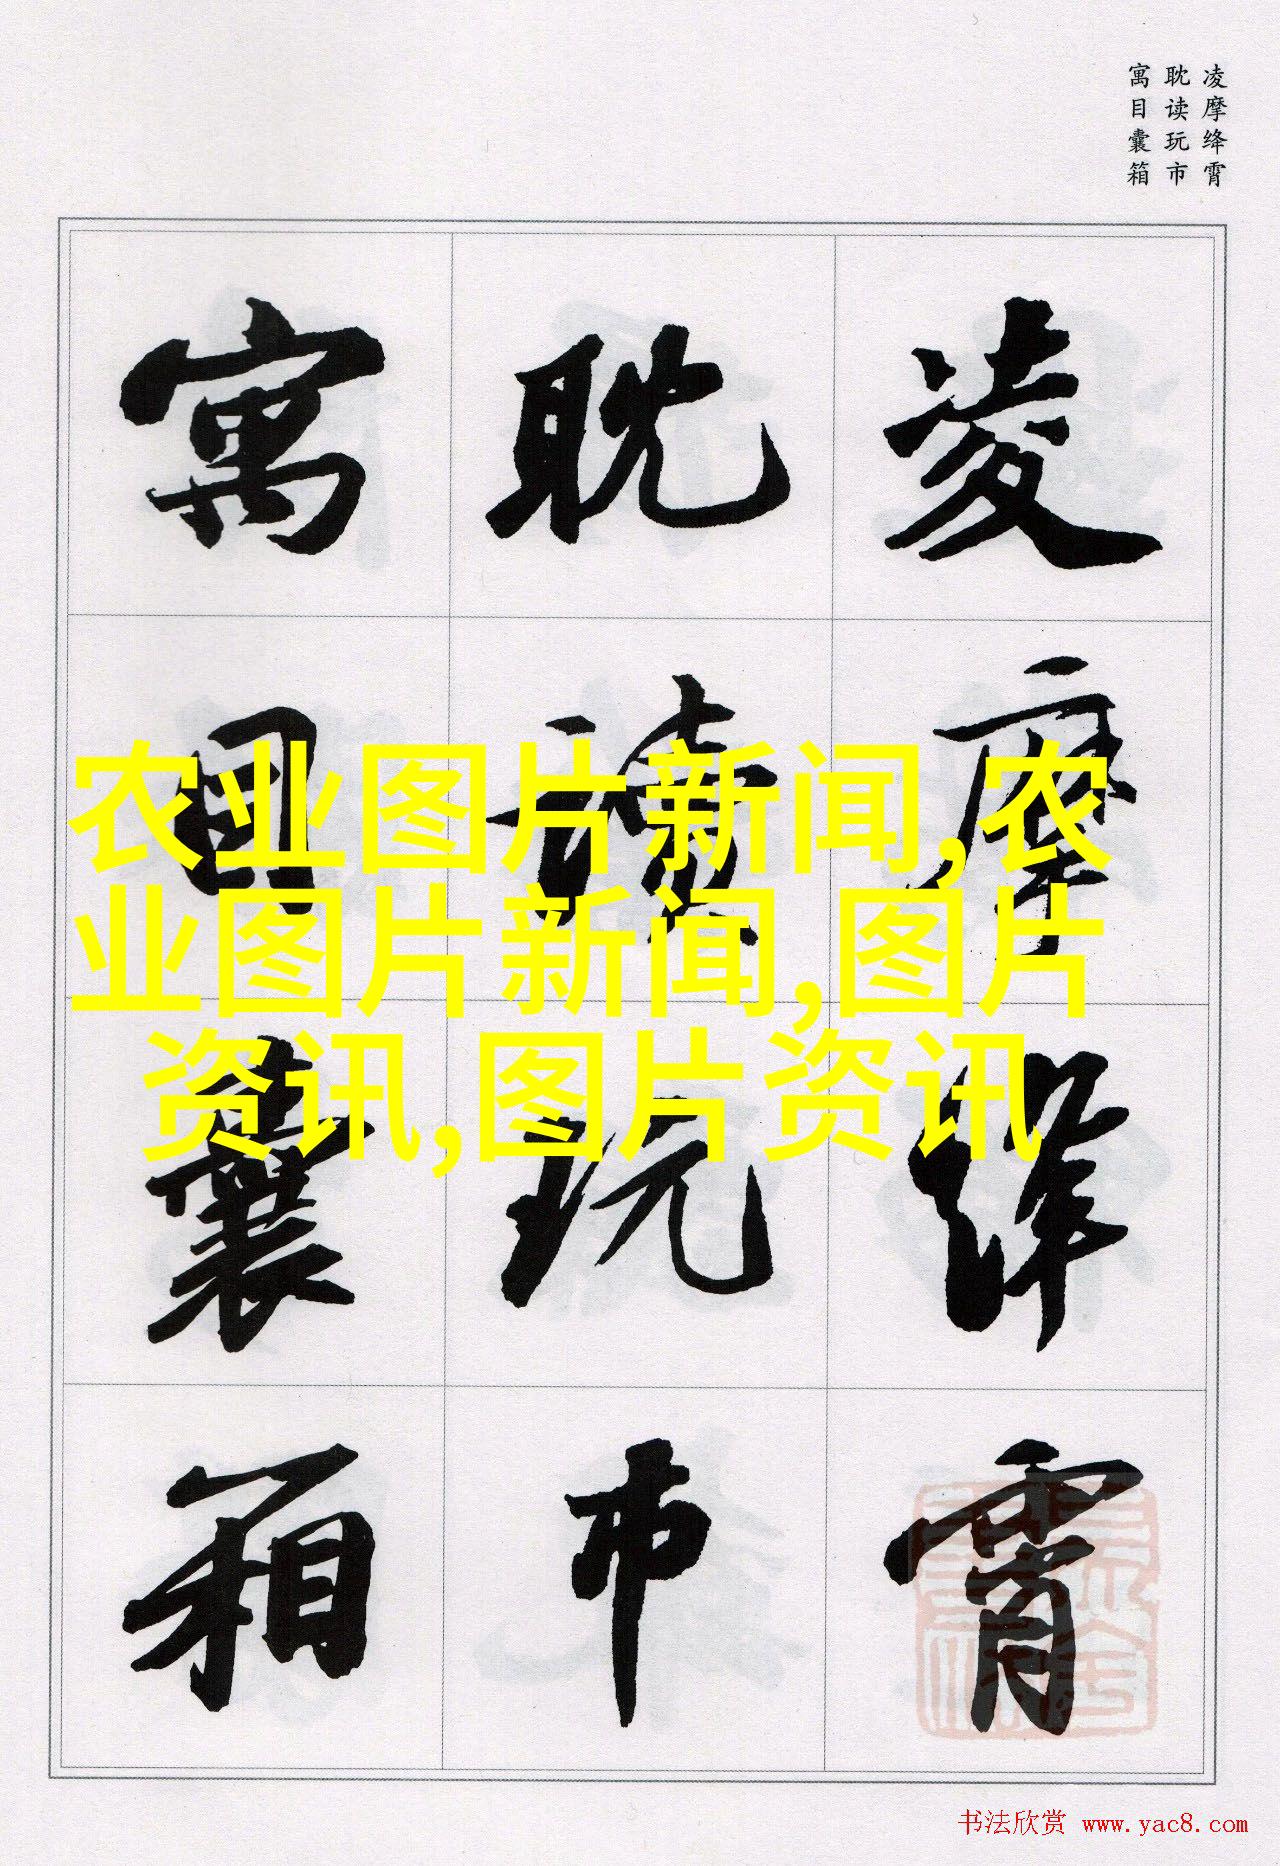 凌摩绛霄
耽读玩市
寓目囊箱
凌摩绛霄
耽讀玩市
寓目囊箱
农业图片新闻,农
业图片新闻,图片
资讯,图片资讯
书法欣赏 www.yac8.com